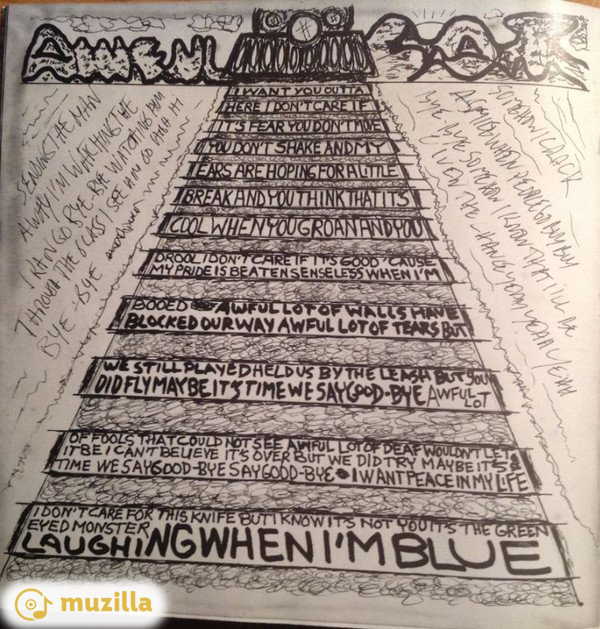 AWFUL
I WANT YOU OUTTA
HERE I DON'T CARE IF
IT'S FEAR YOU DON'T MOVE
YOU DON'T SHAKE AND MY
EARS ARE HOPING FOR A LITTLE
BREAK AND YOU THINK THAT ITS
COOL WHEN YOU GROAN AND YOU
DROOL I DON'T CARE IF IT'S GOOD 'CAUSE
MY PRIDE IS BEATEN SENSELESS WHEN I'M
BOOED AWFUL LOT OF WALLS HAVE
BLOCKED OUR WAY AWFUL LOT OF TEARS BUT
WE STILL PLAYED HELD US BY THE LEASH BUT YOU
DID FLY MAYBE IT'S TIME WE SAY GOOD-BYE AWFUL LOT
OF FOOLS THAT COULD NOT SEE AWFUL LOT OF DEAF WOULDN'T LET
IT BE I CAN'T BELIEVE IT'S OVER BUT WE DID TRY MAYBE IT'S
TIME WE SAY GOOD-BYE SAY GOOD-BYE I WANT PEACE IN MY LIFE
I DON'T CARE FOR THIS KNIFE BUT I KNOW IT'S NOT YOU IT'S THE GREEN
EYED MONSTER
LAUGHING WHEN I'M BLUE
SENDING THE MAN
AWAY I'M WATCHING THE
TRAIN GO BYE-BYE WATCHING HIM
THROUGH THE GLASS I SEE HIM GO
BYE-BYE
BYE BYE SOMEHOW I KNOW THAT I'LL BE
muzilla